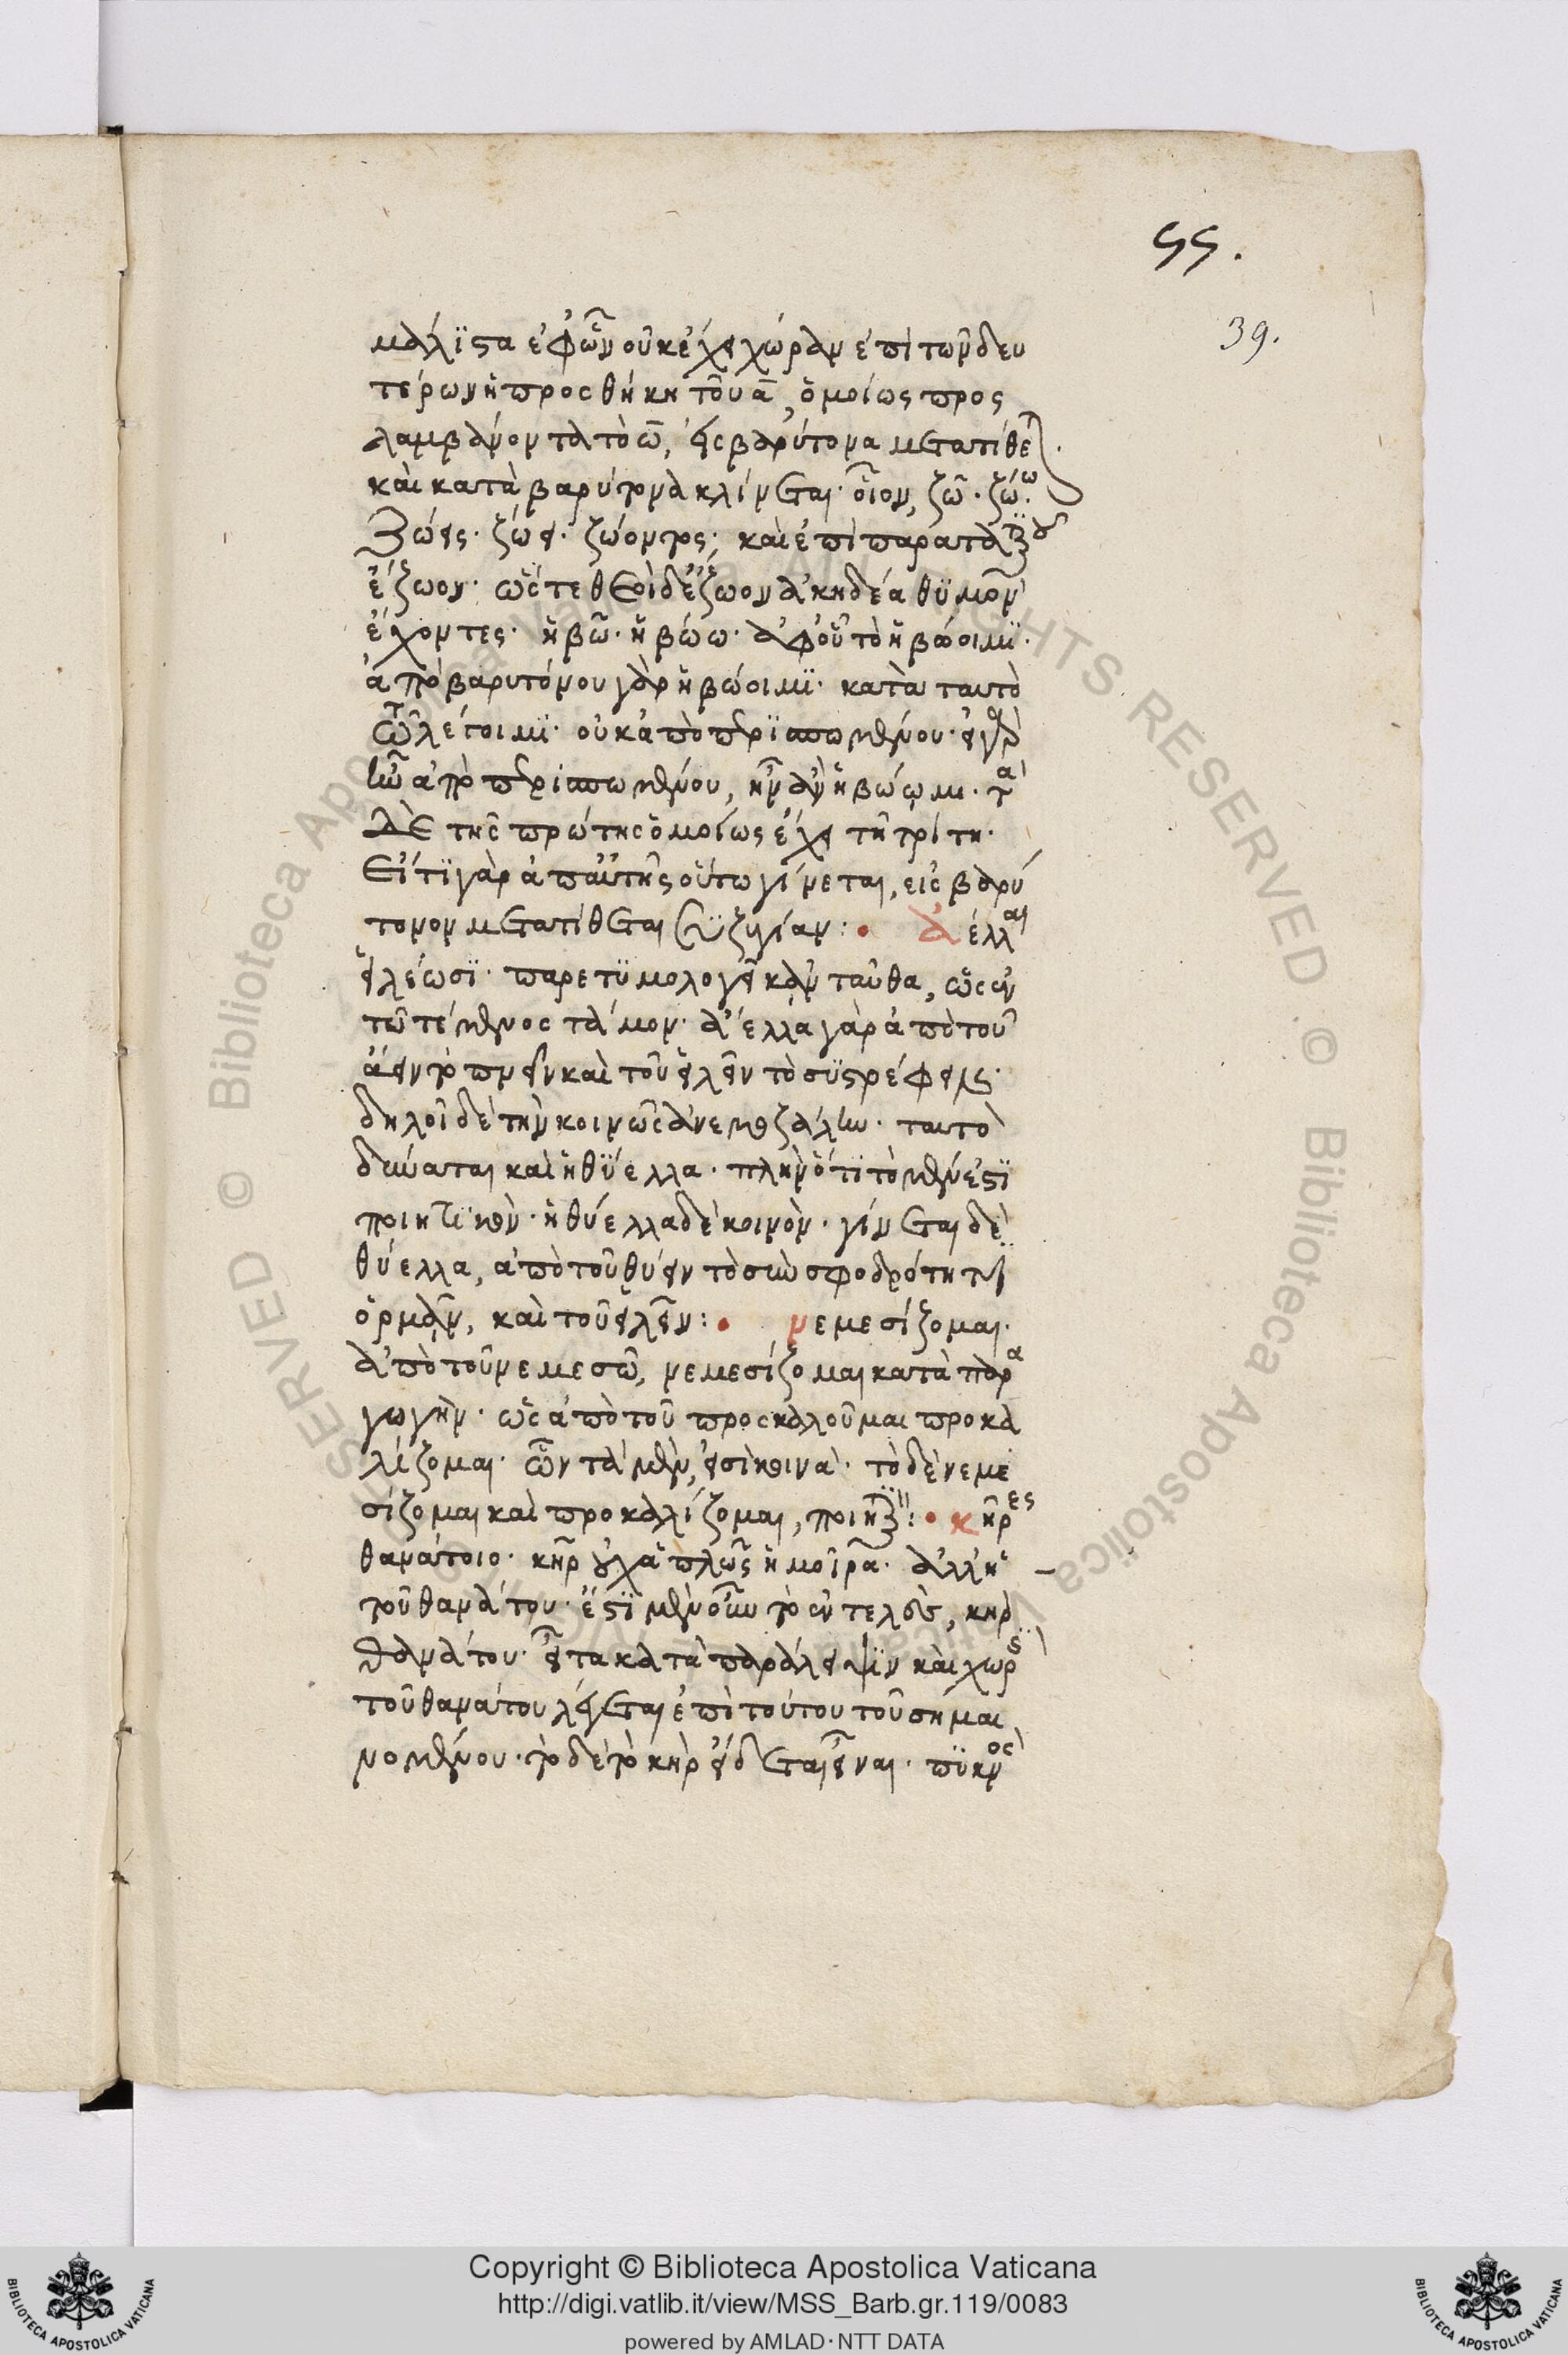 55.
39.
μάλιστα ἐφ' ὧν οὐκ ἔχει χώραν ἐπὶ τῶν δευ
τέρων ἡ προσθήκη τοῦ α, ὁμοίως προς
λαμβάνοντα τὸ ω, εἰς βαρύτονα μετατίθε
καὶ κατὰ βαρύτονα κλίνεται· οἷον, ζῶ· ζώω·
ζώεις· ζώει· ζώοντος· καὶ ἐπὶ παρατατ
ἔζωον· ὥστε θεοὶ δ' ἔζωον ἀκηδέα θυμὸν
ἔχοντες· ἡβῶ· ἡβώω· ἀφ' οὗ τὸ ἡβώοιμι·
ἀπὸ βαρυτόνου γὰρ ἡβώοιμι· κατὰ ταυτὸ
τῶ λέγοιμι· οὐκ ἀπὸ περισπωμένου· εἰ γὰρ
ἦν ἀπὸ περισπωμένου, ἦν ἂν ἡβώωμι· τὰ
δὲ τῆς πρώτης ὁμοίως ἔχει τῆ τρίτη·
εἴ τι γὰρ ἀπ' αὐτῆς οὕτω γίνεται, εἰς βαρύ
τονον μετατίθεται συζυγίαν: • ἄελλαι
εἰλέωσι· παρετυμολογεῖ κἀνταῦθα, ὡς ἐν
τῶ τέμενος τάμον· ἄελλα γὰρ ἀπὸ τοῦ
ἄειν τὸ πνεῖν καὶ τοῦ εἰλεῖν τὸ συστρέφειν·
δηλοῖ δὲ τὴν κοινῶς ἀνεμοζάλην· ταυτὸ
δύναται καὶ ἡ θύελλα· πλὴν ὅτι τὸ μέν ἐστι
ποιητικὸν· ἡ θύελλα δὲ κοινὸν· γίνεται δὲ
θύελλα, ἀπὸ τοῦ θύειν τὸ σὺν σφοδρότητι
ὁρμᾶν, καὶ τοῦ εἰλεῖν: • νεμεσίζομαι·
ἀπὸ τοῦ νεμεσῶ, νεμεσίζομαι κατὰ παρα
γωγὴν· ὡς ἀπὸ τοῦ προσκαλοῦμαι προκα
λίζομαι· ὧν τὰ μὲν, εἰσὶ κοινὰ· τὸ δὲ νεμε
σίζομαι καὶ προκαλίζομαι, ποιητ: • κῆρες
θανάτοιο· κῆρ οὐχ ἁπλῶς ἡ μοῖρα· ἀλλ' ἡ
τοῦ θανάτου· ἔστι μὲν οὖν τὸ ἐντελὲς, κὴρ
θανάτου· εἶτα κατὰ παράλειψιν καὶ χωρὶς
τοῦ θανάτου λέγεται ἐπὶ τούτου τοῦ σημαι
νομένου· τὸ δὲ τὸ κὴρ εἴδεται εἶναι· πυκνὸς
Copyright © Biblioteca Apostolica Vaticana
http://digi.vatlib.it/view/MSS_Barb.gr.119/0083
powered by AMLAD·NTT DATA